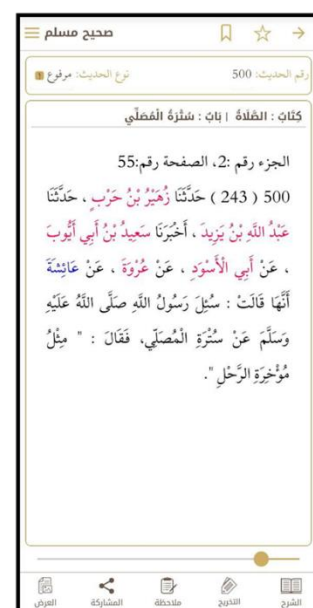 صحيح مسلم
رقم الحديث: 500 نوع الحديث: مرفوع
كِتَابُ : الصَّلَاةُ | بَابُ : سُتْرَةُ الْمُصَلِّي
الجزء رقم :2، الصفحة رقم:55
500 ( 243 ) حَدَّثَنَا زُهَيْرُ بْنُ حَرْبٍ ، حَدَّثَنَا
عَبْدُ اللَّهِ بْنُ يَزِيدَ ، أَخْبَرَنَا سَعِيدُ بْنُ أَبِي أَيُّوبَ
، عَنْ أَبِي الْأَسْوَدِ ، عَنْ عُرْوَةَ ، عَنْ عَائِشَةَ
أَنَّهَا قَالَتْ : سُئِلَ رَسُولُ اللَّهِ صَلَّى اللَّهُ عَلَيْهِ
وَسَلَّمَ عَنْ سُتْرَةِ الْمُصَلِّي، فَقَالَ : " مِثْلُ
مُؤْخِرَةِ الرَّحْلِ ".
الشرح التخريج ملاحظة المشاركة العرض